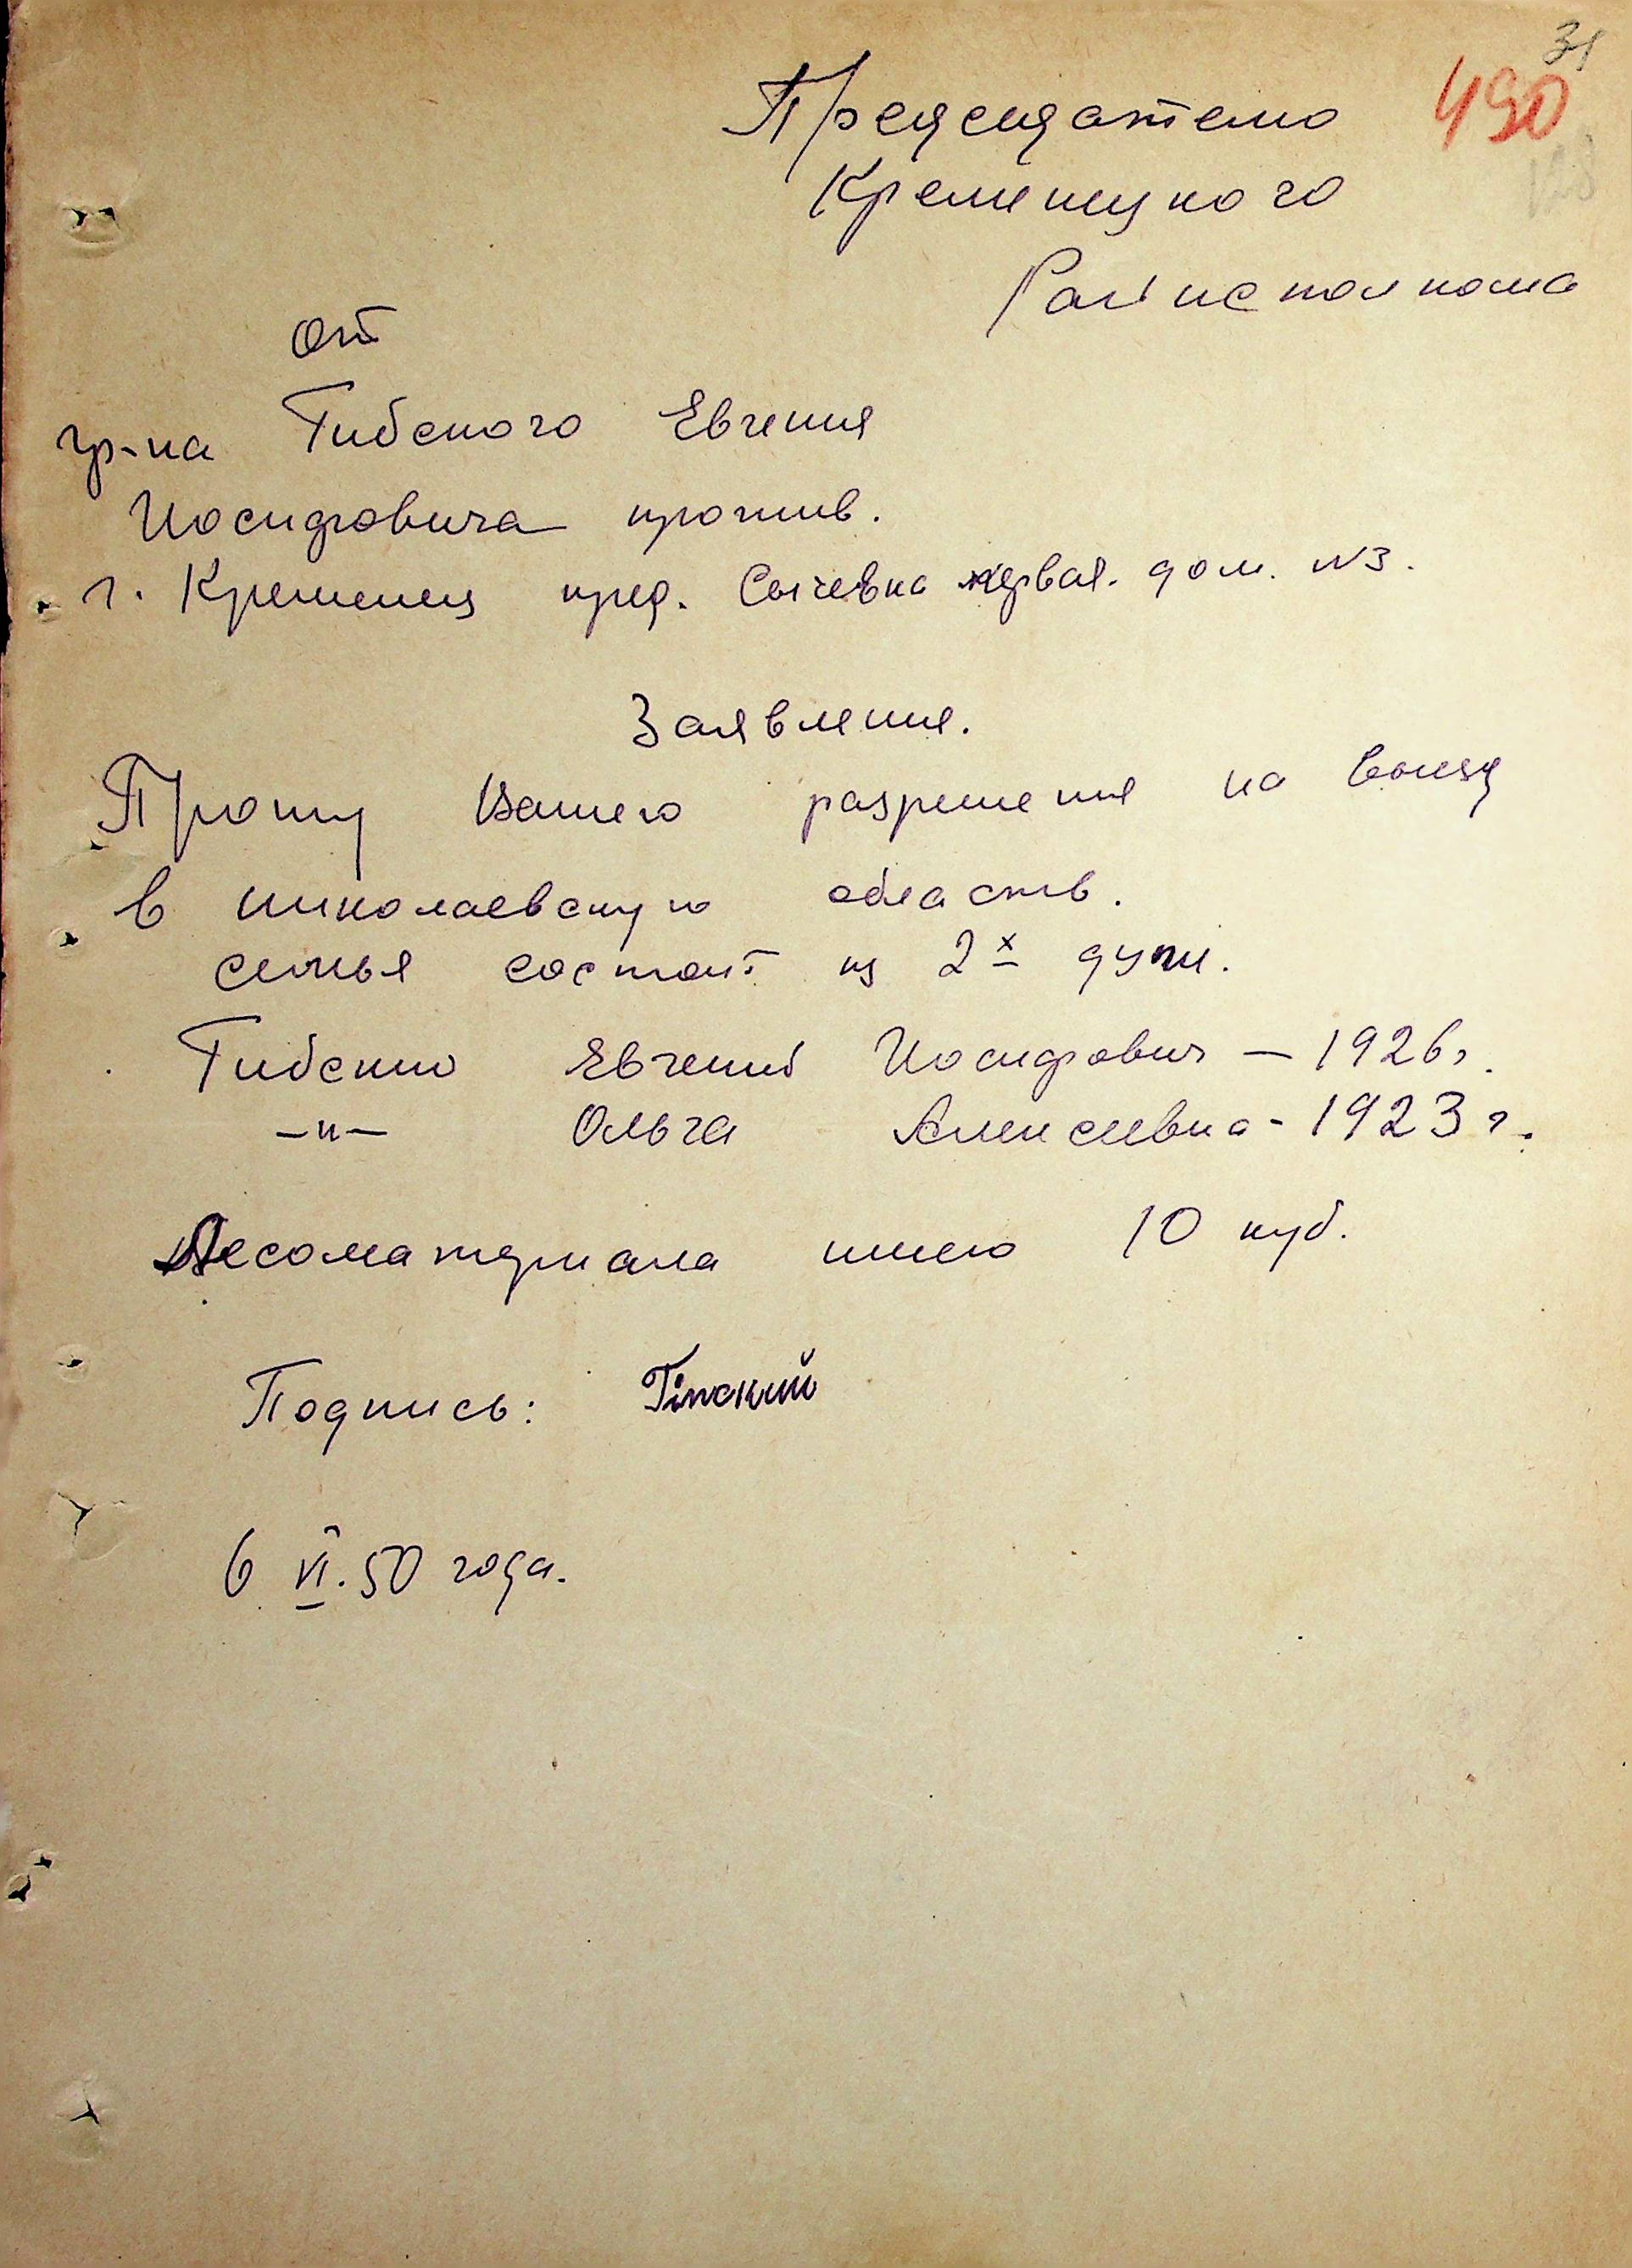 31
490
Председателю
Кременецкого
Райисполкома
от
гр-на Гибского Евгения
Иосифовича прожив.
г. Кременец пред. Сычевка первая. дом. N3.
Заявление.
Прошу Вашего разрешения на выезд
в николаевскую область.
семья состоит из 2х душ.
Гибский Евгений Иосифович – 1926г.
–"– Ольга Алексеевна - 1923 г.
Лесоматериала имею 10 куб.
Подпись:
6 VI. 50 года.